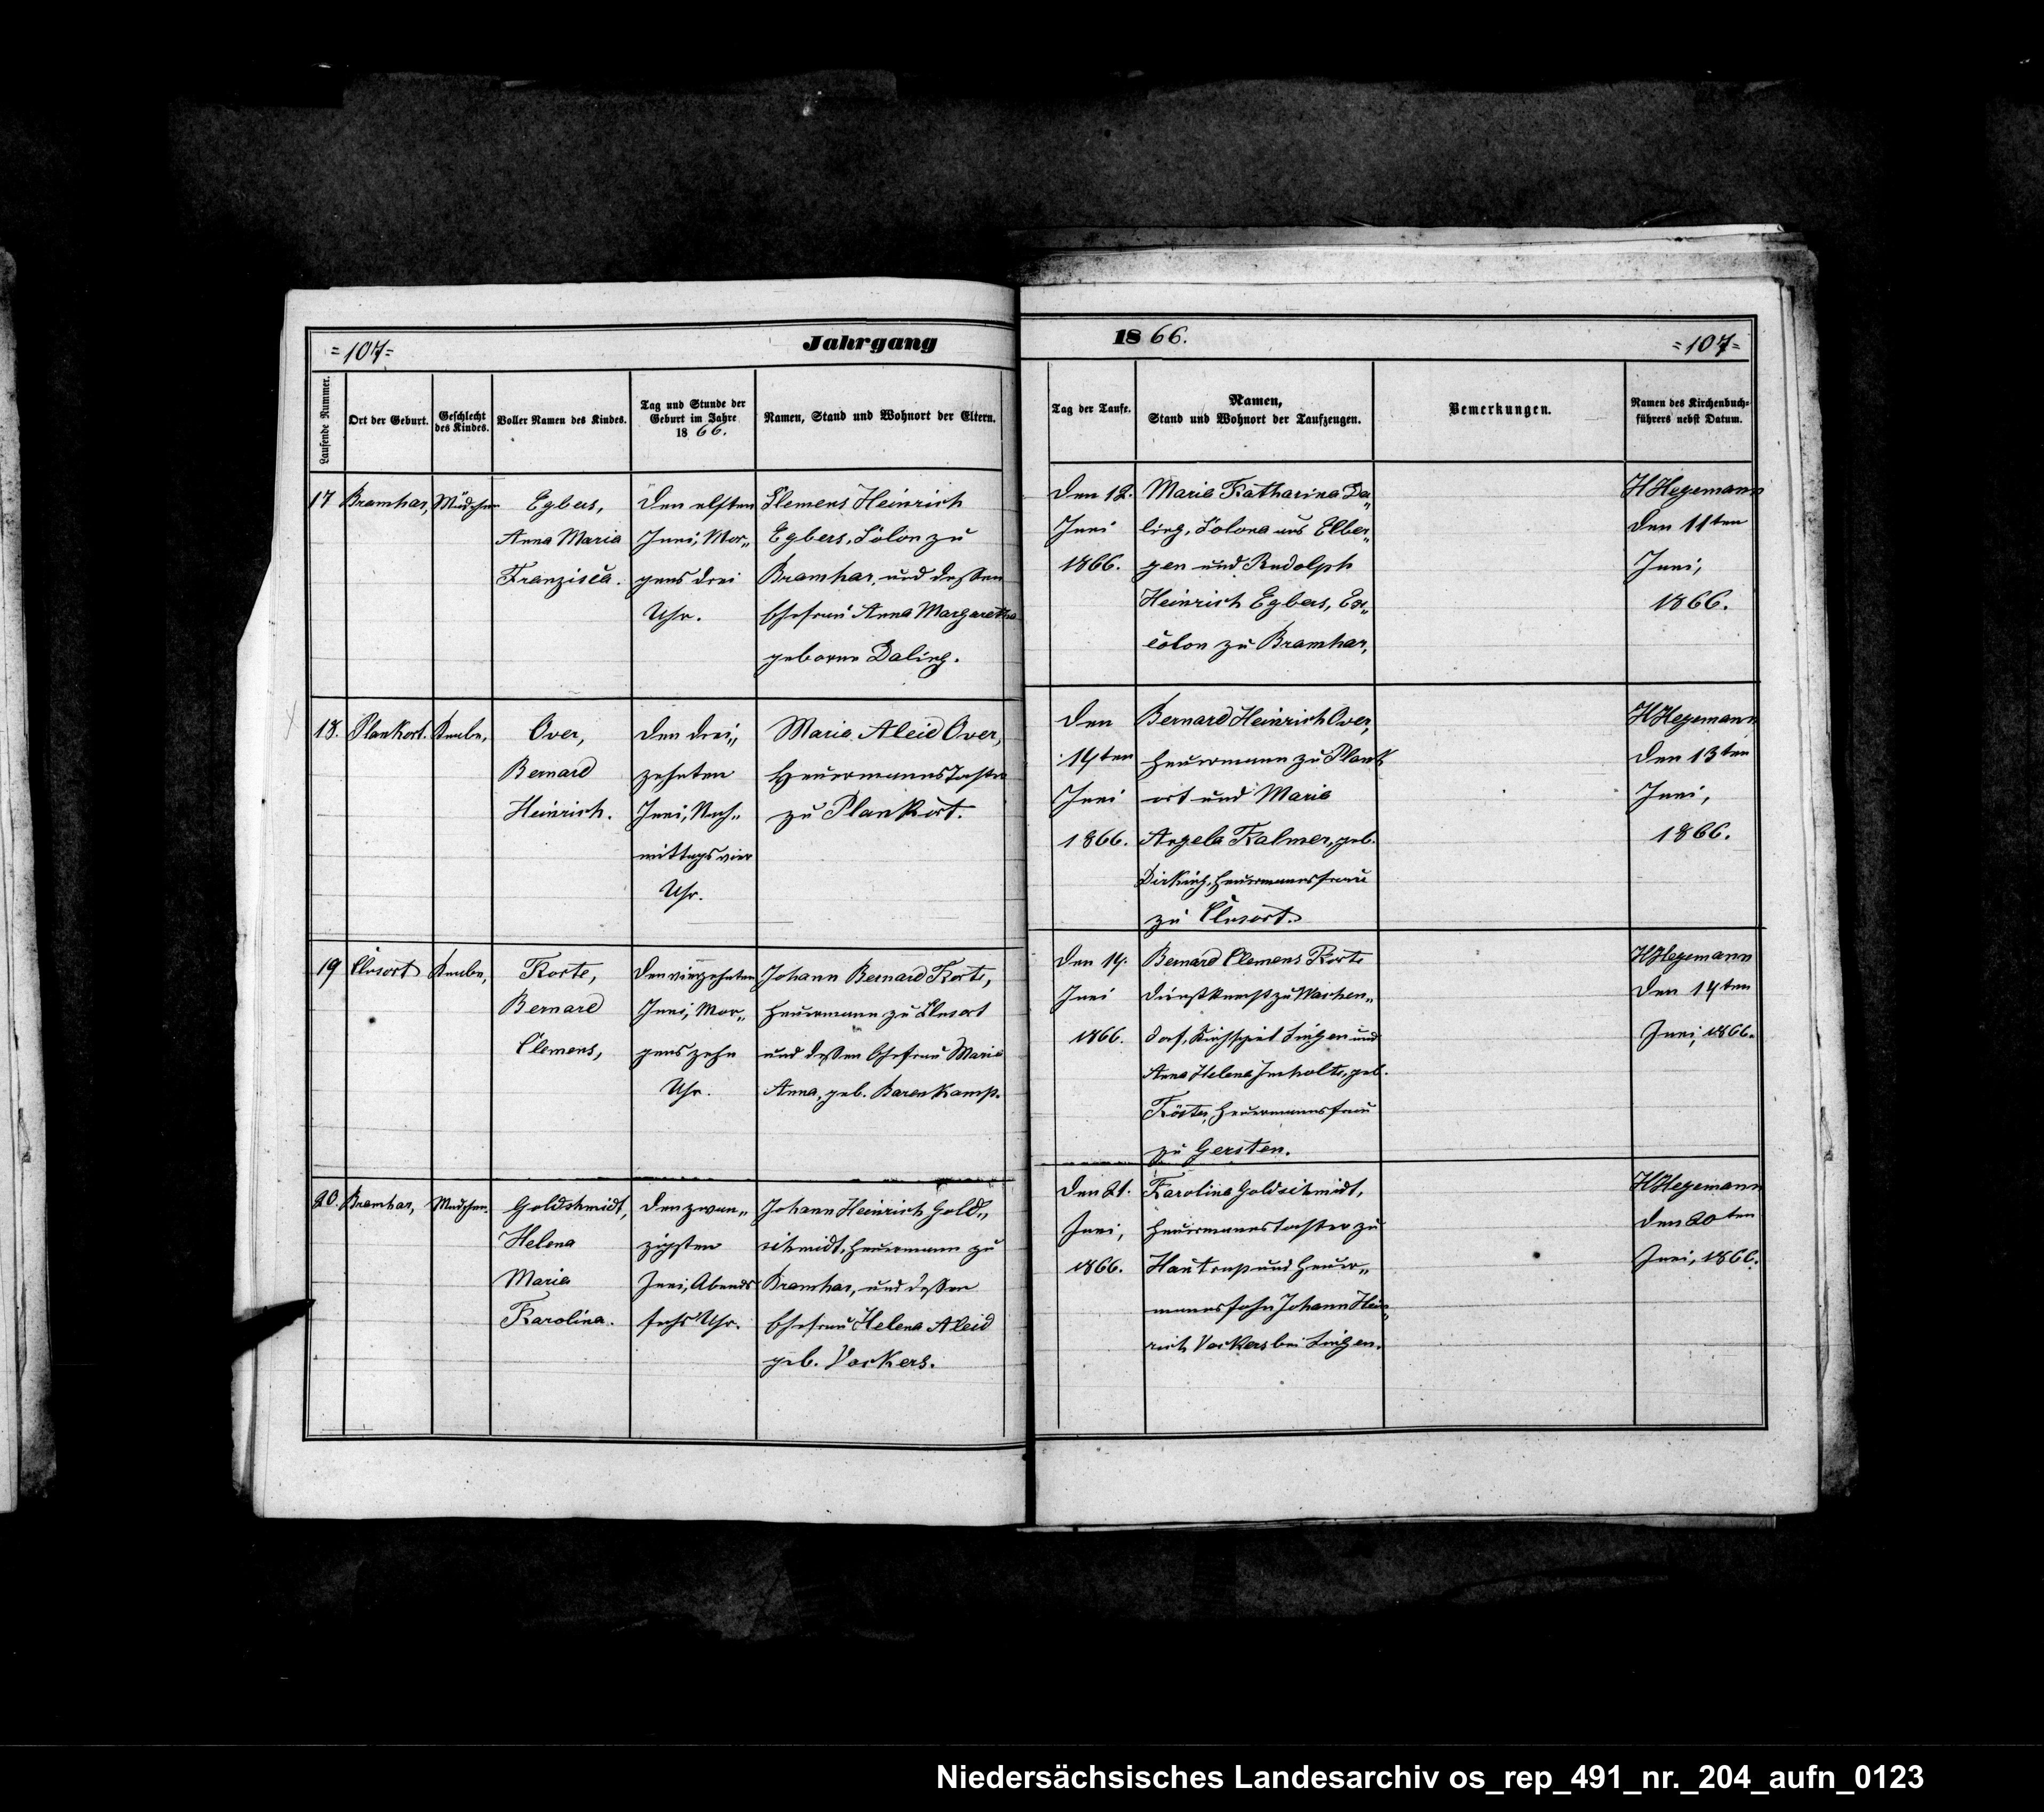 =107=
Jahrgang
1866.
=107=
Laufende Nummer.
Ort der Geburt.
Geschlecht
des Kindes.
Voller Namen des Kindes.
Tag und Stunde der
Geburt im Jahre
1866.
Namen, Stand und Wohnort der Eltern.
Tag der Taufe.
Namen,
Stand und Wohnort der Taufzeugen.
Bemerkungen.
Namen des Kirchenbuch-
führers nebst Datum.
17
Bramhar,
Mädchen
Egbers,
Anna Maria
Franzisca.
Den elften
Juni, Mor„
gens drei
Uhr.
Clemens Heinrich
Egbers, Colon zu
Bramhar, und dessen
Ehefrau Anna Margaretha
geborne Daling.
Den 12.
Juni
1866.
Maria Katharina Da„
ling, Colona aus Elber„
gen und Rudolph
Heinrich Egbers, Ex„
colon zu Bramhar,
HHegemann
den 11ten
Juni,
1866.
18.
Plankort.
Knabe,
Over,
Bernard
Heinrich.
Den drei„
zehnten
Juni, Nach„
mittags vier
Uhr.
Maria Aleid Over,
Heuermannstochter
zu Plankort.
Den
14ten
Juni
1866.
Bernard Heinrich Over,
Heuermann zu Plank
ort und Maria
Angela Kalmer, geb.
Dirking, Heuermannsfrau
zu Clusort.
HHegemann
den 13ten
Juni,
1866.
19
Clusort
Knabe,
Korte,
Bernard
Clemens,
Den vierzehnten
Juni, Mor„
gens zehn
Uhr.
Johann Bernard Korte,
Heuermann zu Clusort
und dessen Ehefrau Maria
Anna, geb. Barenkamp.
Den 14.
Juni
1866.
Bernard Clemens Korte
Dienstknecht zu Wachen„
dorf, Kirchspiel Lingen und
Anna Helena Imholte, geb.
Köster, Heuermannsfrau
zu Gersten.
HHegemann
den 14ten
Juni, 1866.
20.
Bramhar,
Mädchen.
Goldschmidt,
Helena
Maria
Karolina.
Den zwan„
zigsten
Juni, Abends
sechs Uhr.
Johann Heinrich Gold„
schmidt, Heuermann zu
Bramhar, und dessen
Ehefrau Helena Aleid
geb. Vockers.
Den 21.
Juni,
1866.
Karolina Goldschmidt,
Heuermannstochter zu
und Heuer„
mannssohn Johann Hein„
rich Vockers bei Lingen.
HHegemann
den 20ten
Juni, 1866.
Niedersächsisches Landesarchiv os_rep_491_nr._204_aufn_0123